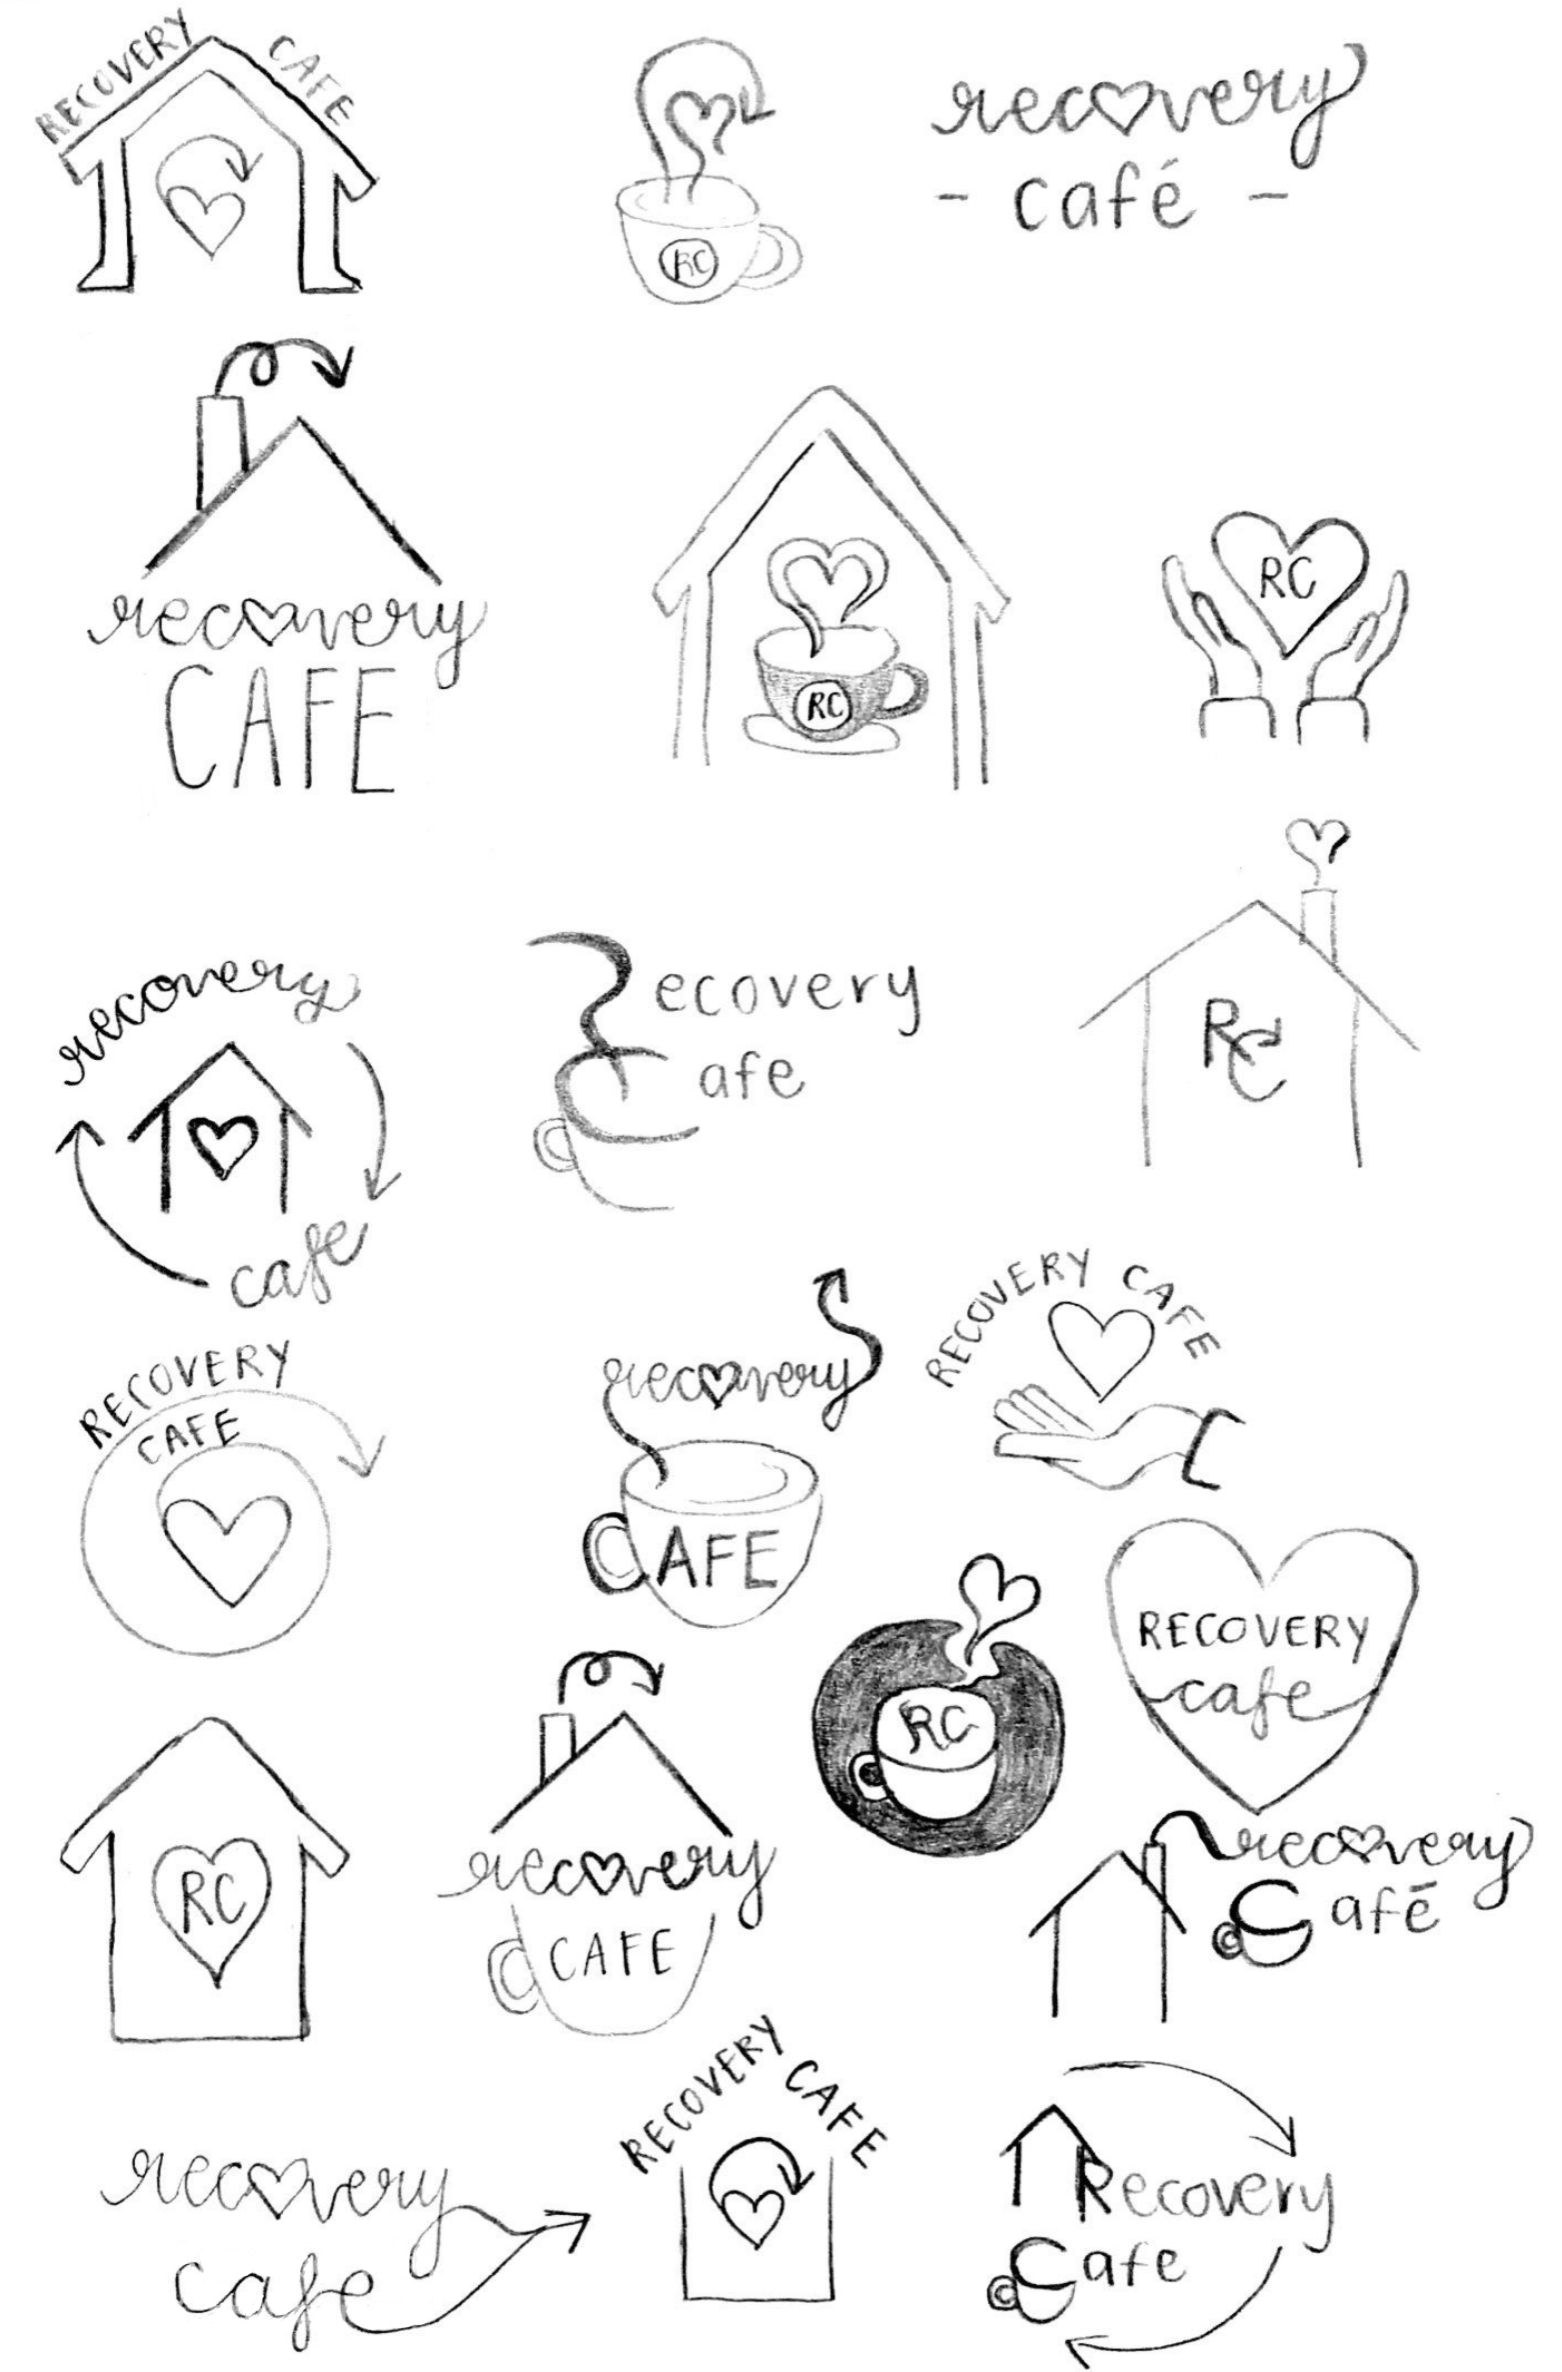 RECOVERY CAFE
RC
recovery
- café -
recovery
CAFE
RC
RC
recovery
cafe
Recovery
Cafe
RC
RECOVERY
CAFE
recovery
CAFE
RECOVERY CAFE
RC
RECOVERY
cafe
RC
recovery
CAFE
recovery
Café
recovery
cafe
RECOVERY CAFE
Recovery
Cafe